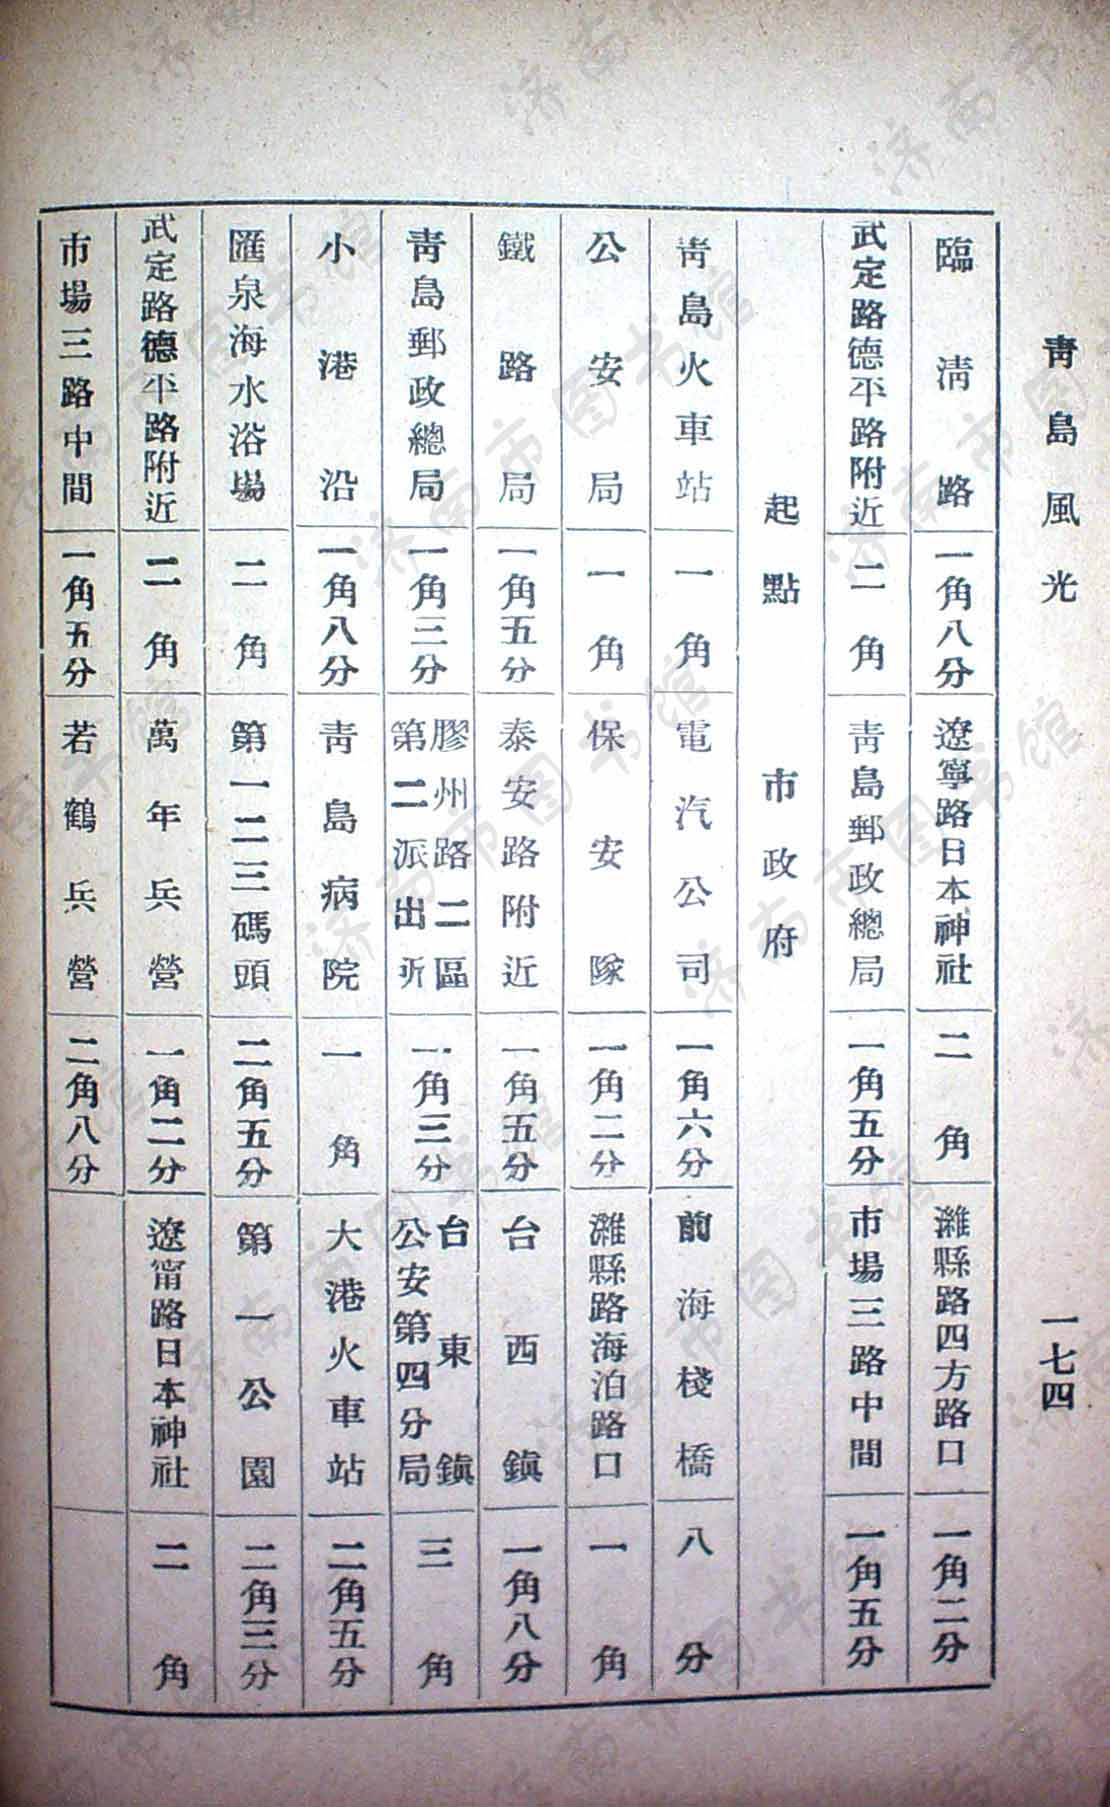 青島風光
一七四
臨清路 一角八分 遼寧路日本神社 二角 濰縣路四方路口 一角二分
武定路德平路附近 二角 靑島郵政總局 一角五分 市場三路中間 一角五分
起點 市政府
靑島火車站 一角 電汽公司 一角六分 前海棧橋 八分
公安局 一角 保安隊 一角二分 濰縣路海泊路口 一角
鐵路局 一角五分 泰安路附近 一角五分 台西鎭 一角八分
靑島郵政總局 一角三分 膠州路二區第二派出所 一角三分 台東鎭公安第四分局 三角
小港沿 一角八分 靑島病院 一角 大港火車站 二角五分
匯泉海水浴場 二角 第一二三碼頭 二角五分 第一公園 二角三分
武定路德平路附近 二角 萬年兵營 一角二分 遼甯路日本神社 二角
市場三路中間 一角五分 若鶴兵營 二角八分
济南市图书馆